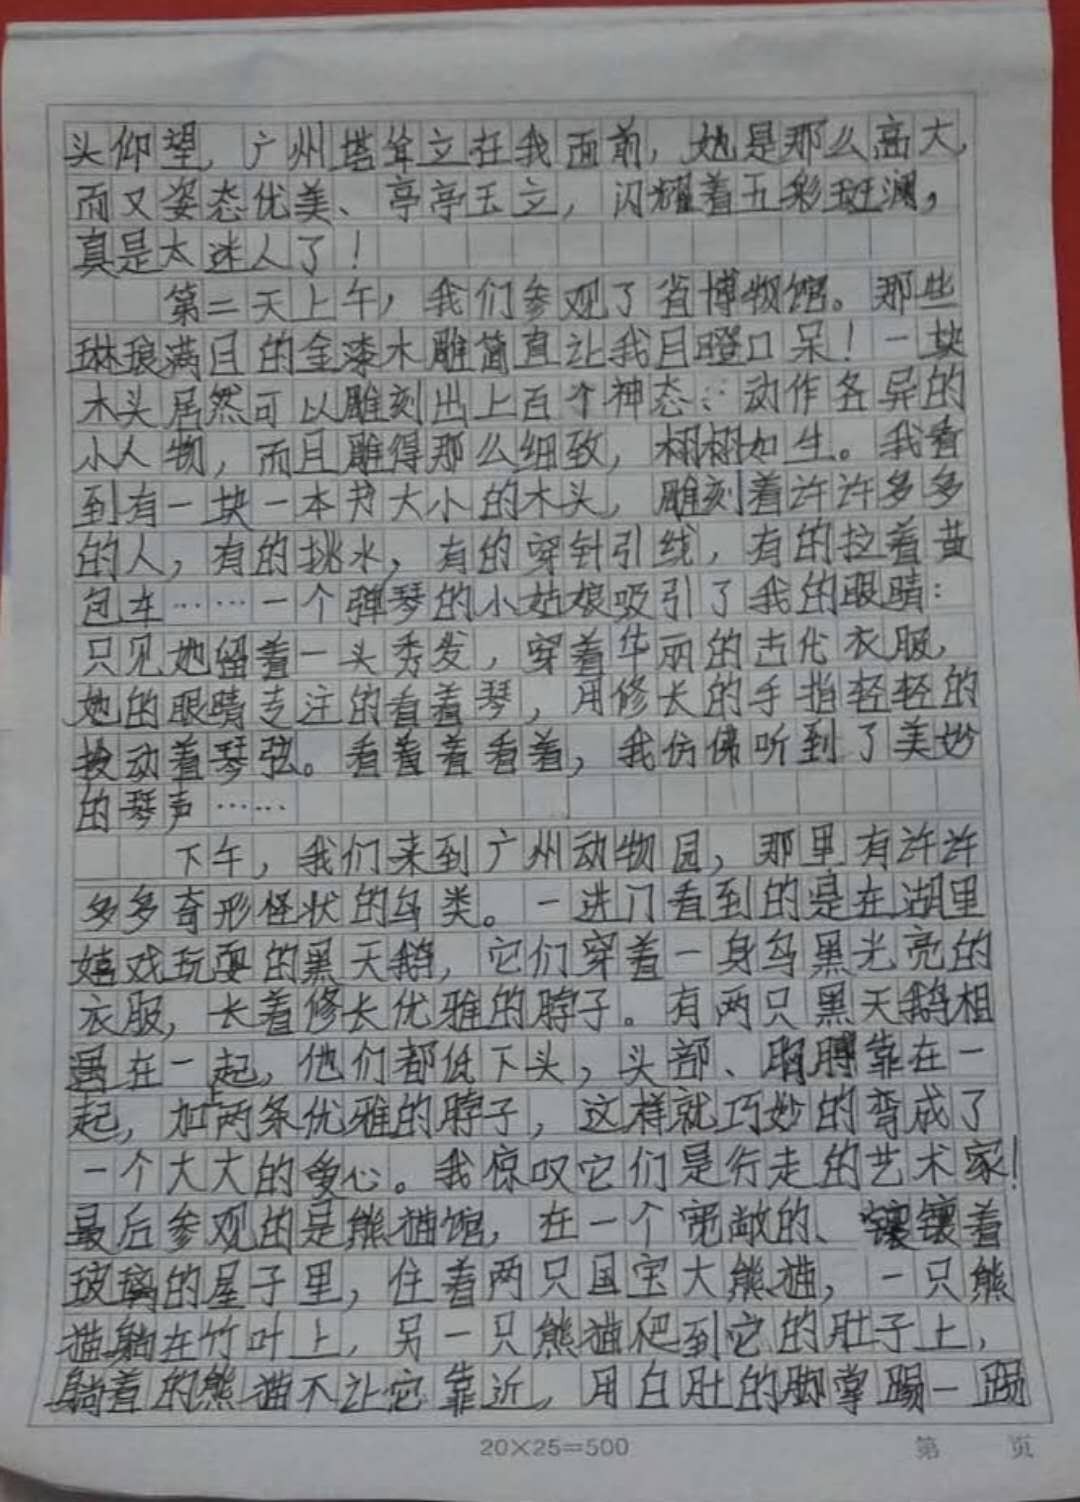 头仰望，广州塔耸立在我面前，她是那么高大，
而又姿态优美、亭亭玉立，闪耀着五彩斑澜，
真是太迷人了！
第二天上午，我们参观了省博物馆。那些
琳琅满目的金漆木雕简直让我目瞪口呆！一块
木头居然可以雕刻出上百个神态：动作各异的
小人物，而且雕得那么细致，栩栩如生。我看
到有一块一本书大小的木头，雕刻着许许多多
的人，有的挑水，有的穿针引线，有的拉着黄
包车……一个弹琴的小姑娘吸引了我的眼睛：
只见她留着一头秀发，穿着华丽的古代衣服，
她的眼睛专注的看着琴，用修长的手指轻轻的
拨动着琴弦。看着着看着，我仿佛听到了美妙
的琴声……
下午，我们来到广州动物园，那里有许许
多多奇形怪状的鸟类。一进门看到的是在湖里
嬉戏玩耍的黑天鹅，它们穿着一身乌黑光亮的
衣服，长着修长优雅的脖子。有两只黑天鹅相
遇在一起，他们都低下头，头部、胸脯靠在一
起，加上两条优雅的脖子，这样就巧妙的弯成了
一个大大的爱心。我惊叹它们是行走的艺术家！
最后参观的是熊猫馆，在一个宽敞的、镶着
玻璃的屋子里，住着两只国宝大熊猫，一只熊
猫躺在竹叶上，另一只熊猫爬到它的肚子上，
躺着的熊猫不让它靠近，用白肚的脚掌踢一踢
20×25=500
第 页